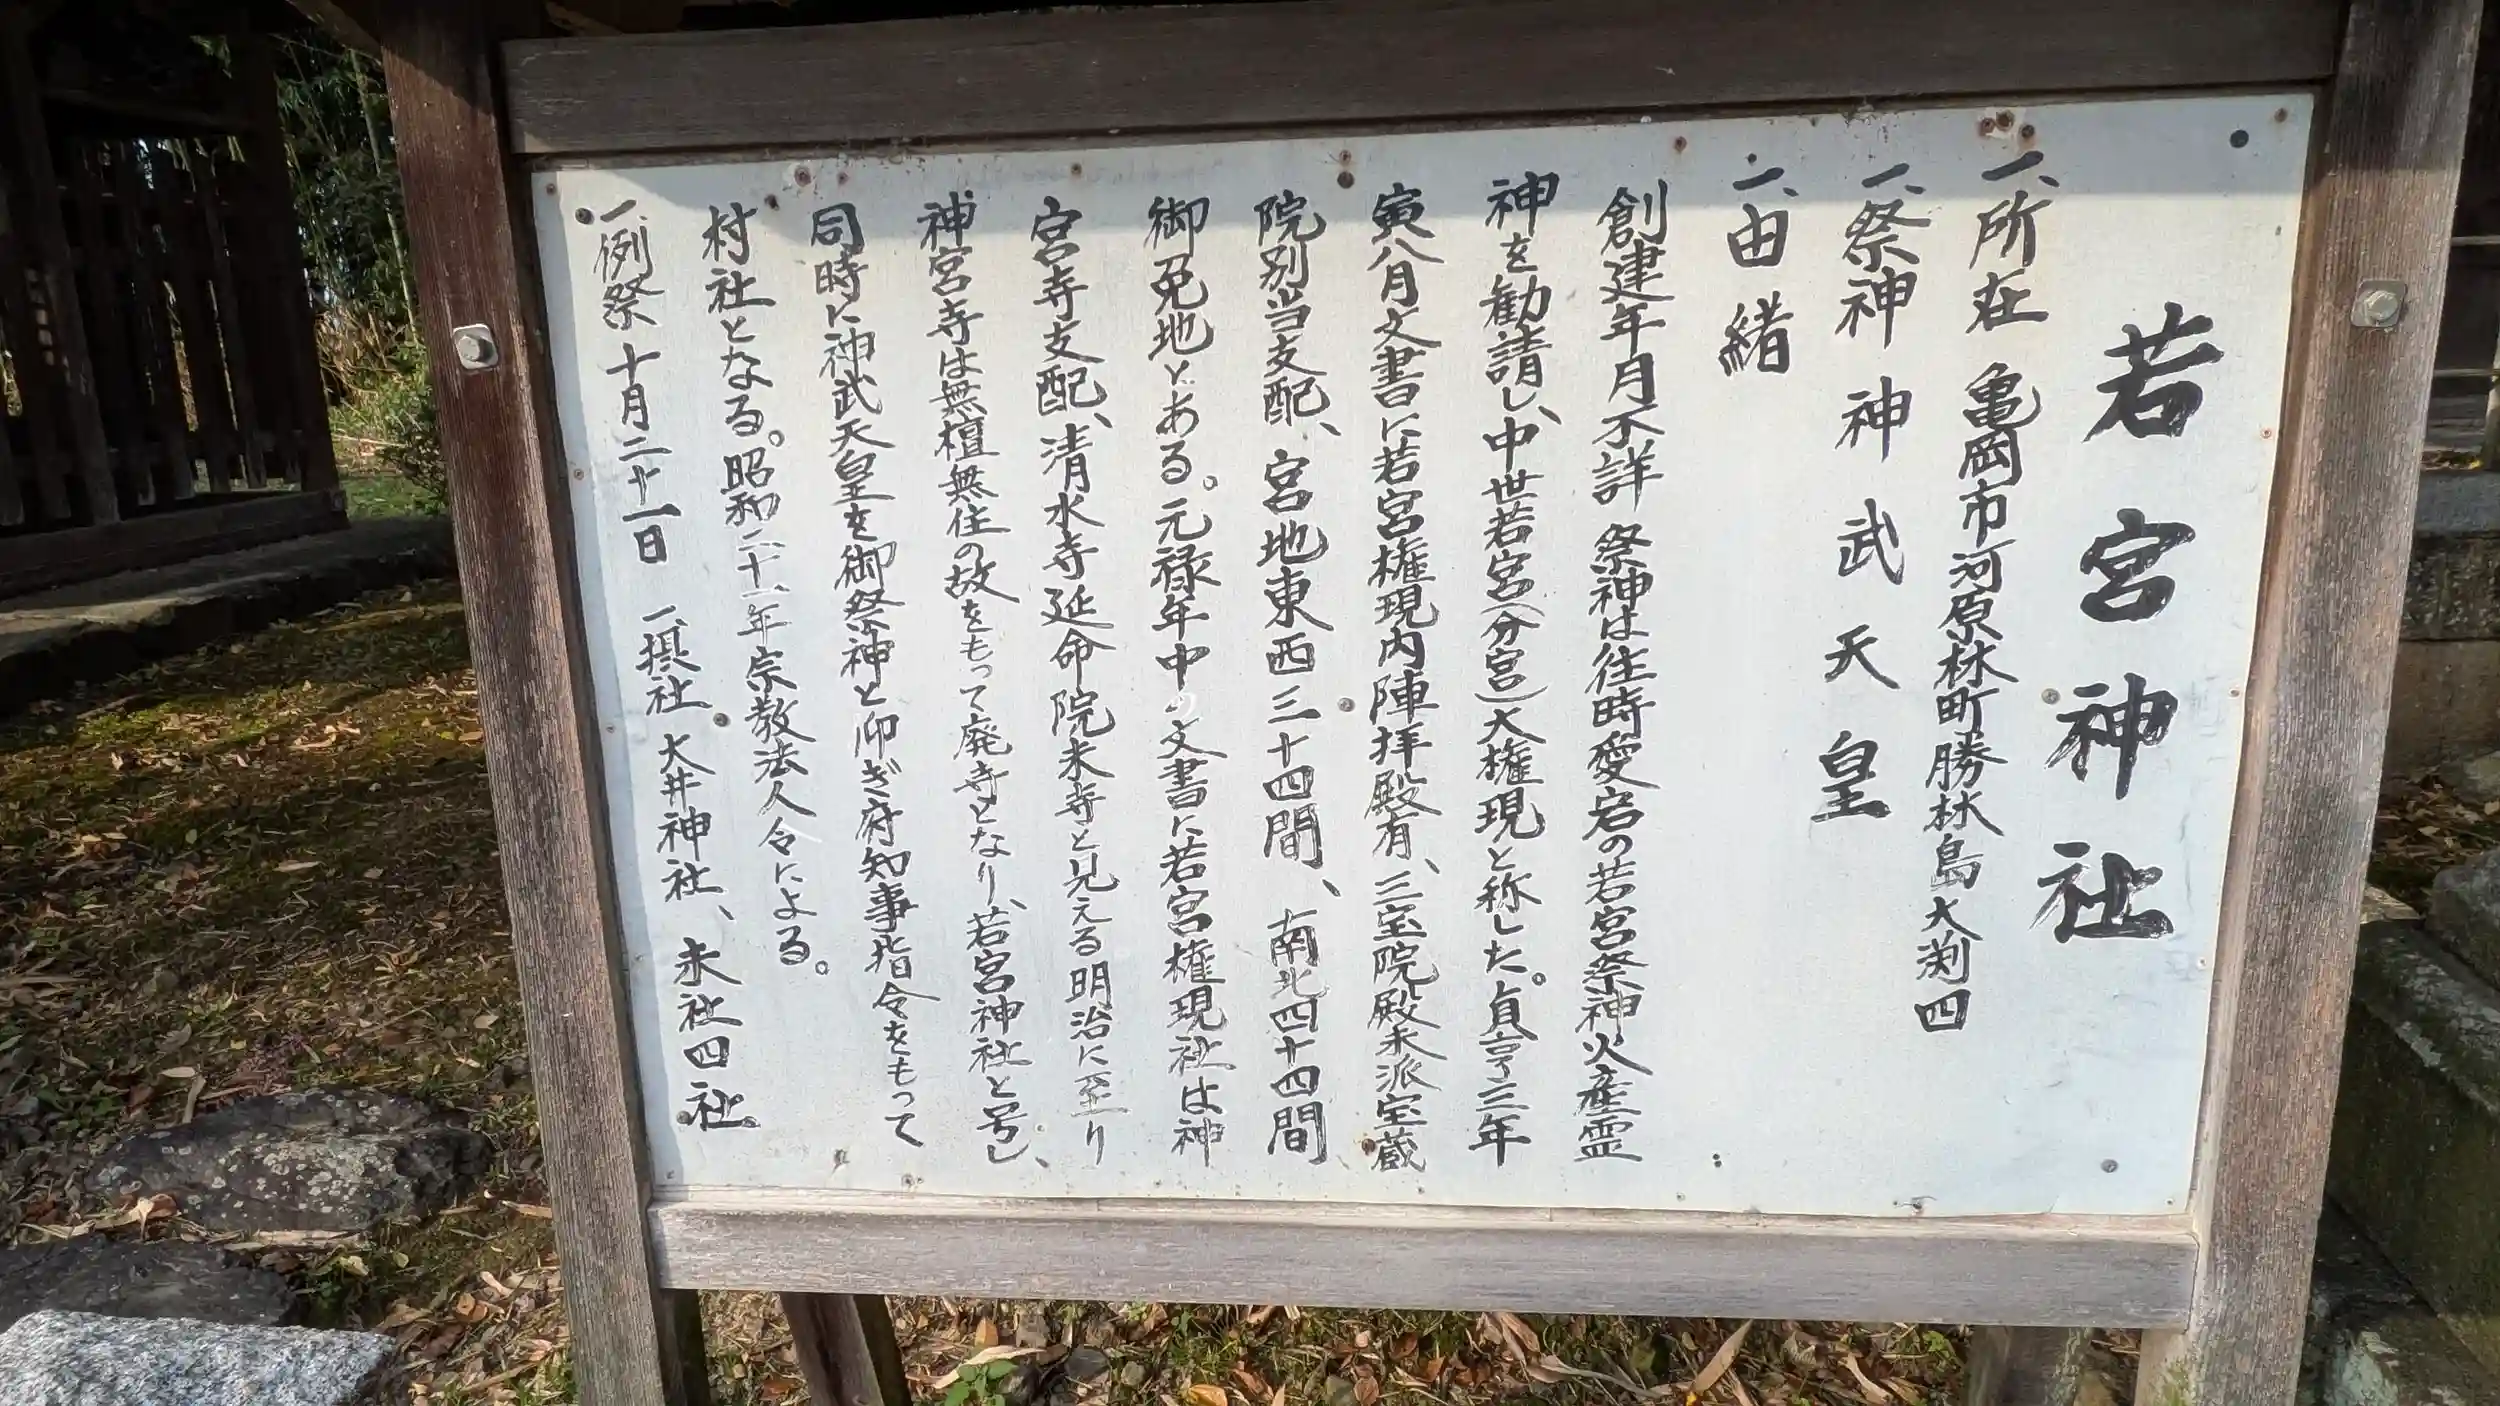 若宮神社
一、所在 亀岡市河原林町勝林島大渕四
一、祭神 神武天皇
一、由緒
創建年月不詳 祭神は往時愛宕の若宮祭神火産霊
神を勧請し、中世若宮(分宮)大権現と称した。貞享三年
寅八月文書に若宮権現内陣拝殿有、三宝院殿末派宝蔵
院別当支配、宮地東西三十四間、南北四十四間
御免地とある。元禄年中の文書に若宮権現社は神
宮寺支配、清水寺延命院末寺と見える明治に至り
神宮寺は無檀無住の故をもって廃寺となり、若宮神社と号し、
同時に神武天皇を御祭神と仰ぎ府知事指令をもって
村社となる。昭和二十一年宗教法人令による。
一、例祭 十月二十一日 一、摂社 大井神社、末社四社。